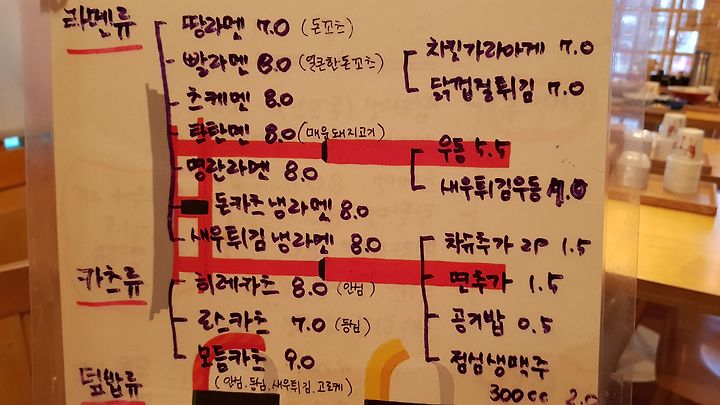 라멘류
땅라멘 7.0 (돈꼬츠)
빨라멘 8.0 (얼큰한돈꼬츠)
츠케멘 8.0
탄탄멘 8.0 (매운돼지고기)
명란라멘 8.0
돈카츠냉라멘 8.0
새우튀김냉라멘 8.0
카츠류
히레카츠 8.0 (안심)
로스카츠 7.0 (등심)
모듬카츠 9.0
(안심.등심.새우튀김.고로케)
덮밥류
치킨가라아게 7.0
닭껍질튀김 7.0
우동 5.5
새우튀김우동
차슈추가 2P 1.5
면추가 1.5
공기밥 0.5
점심생맥주
300cc 2.0